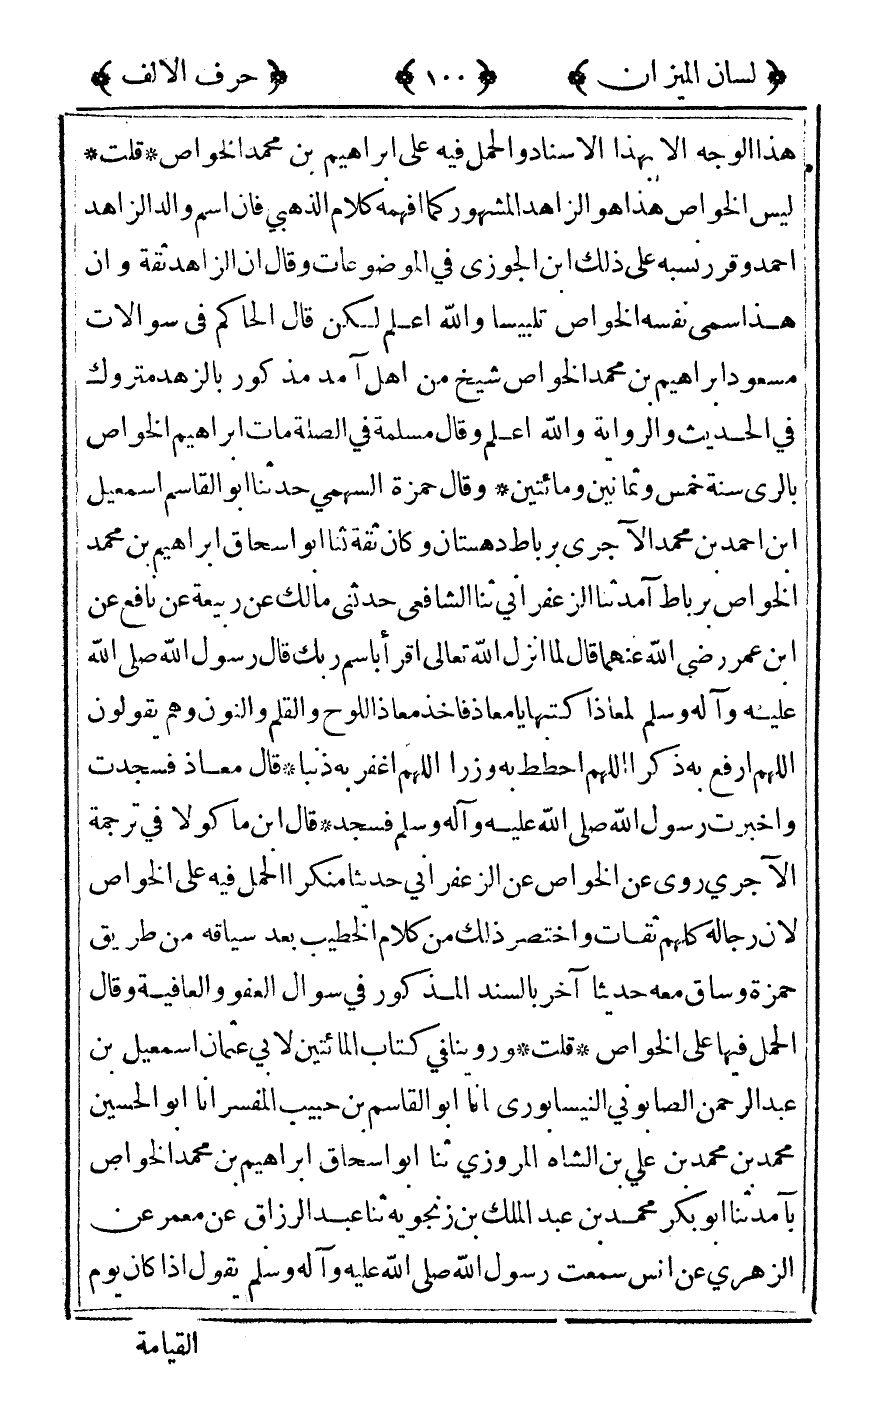 ﴿ لسان الميزان ﴾ ﴿ ١٠٠ ﴾ ﴿ حرف الالف ﴾
هذا الوجه الا بهذا الاسناد والحمل فيه على ابراهيم بن محمد الخواص * قلت *
ليس الخواص هذا هو الزاهد المشهور كما افهمه كلام الذهبي فان اسم والد الزاهد
احمد وقرر نسبه على ذلك ابن الجوزى في الموضوعات وقال ان الزاهد ثقة وان
هذا سمى نفسه الخواص تلبيسا والله اعلم لكن قال الحاكم فى سوالات
مسعود ابراهيم بن محمد الخواص شيخ من اهل آمد مذكور بالزهد متروك
في الحديث والرواية والله اعلم وقال مسلمة في الصلة مات ابراهيم الخواص
بالرى سنة خمس وثمانين ومائتين * وقال حمزة السهمي حدثنا ابو القاسم اسمعيل
ابن احمد بن محمد الآجرى برباط دهستان وكان ثقة ثنا ابو اسحاق ابراهيم بن محمد
الخواص برباط آمد ثنا الزعفراني ثنا الشافعى حدثنى مالك عن ربيعة عن نافع عن
ابن عمر رضى الله عنهما قال لما انزل الله تعالى اقرأ باسم ربك قال رسول الله صلى الله
عليه وآله وسلم لمعاذ اكتبها يا معاذ فاخذ معاذ اللوح والقلم والنون وهم يقولون
اللهم ارفع به ذكرا اللهم احطط به وزرا اللهم اغفر به ذنبا * قال معاذ فسجدت
واخبرت رسول الله صلى الله عليه وآله وسلم فسجد * قال ابن ماكولا في ترجمة
الآجري روى عن الخواص عن الزعفراني حديثا منكرا الحمل فيه على الخواص
لان رجاله كلهم ثقات واختصر ذلك من كلام الخطيب بعد سياقه من طريق
حمزة وساق معه حديثا آخر بالسند المذكور في سوال العفو والعافية وقال
الحمل فيها على الخواص * قلت * وروينا في كتاب المائتين لابي عثمان اسمعيل بن
عبد الرحمن الصابوني النيسابورى انا ابو القاسم بن حبيب المفسر انا ابو الحسين
محمد بن محمد بن علي بن الشاه المروزي ثنا ابو اسحاق ابراهيم بن محمد الخواص
بآمد ثنا ابو بكر محمد بن عبد الملك بن زنجويه ثنا عبد الرزاق عن معمر عن
الزهري عن انس سمعت رسول الله صلى الله عليه وآله وسلم يقول اذا كان يوم
القيامة